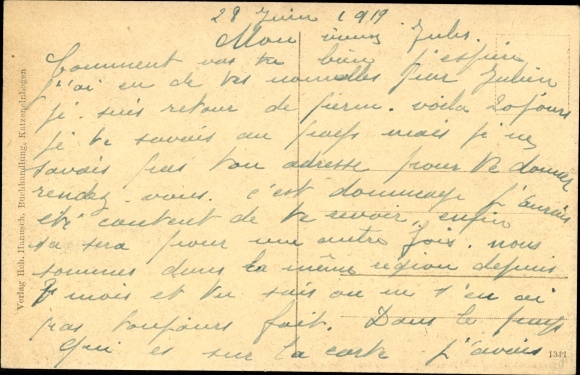 28 Juin 1919
Mon vieux Jules.
Comment vas tu bien j'espère
j'ai eu de tes nouvelles par Julien
je suis retour de perm. voila 20 jours
je te savais au pays mais je ne
savais pas ton adresse pour te donner
rendez-vous. c'est dommage j'aurais
été content de te revoir, enfin
sa sera pour une autre fois. nous
sommes dans la même région depuis
mois et tu sais on ne s'en ai
pas toujours fait. Dans le pays
qui es sur la carte j'avais
Verlag Rob. Hanusch, Buchhandlung, Katzenelnbogen
1311